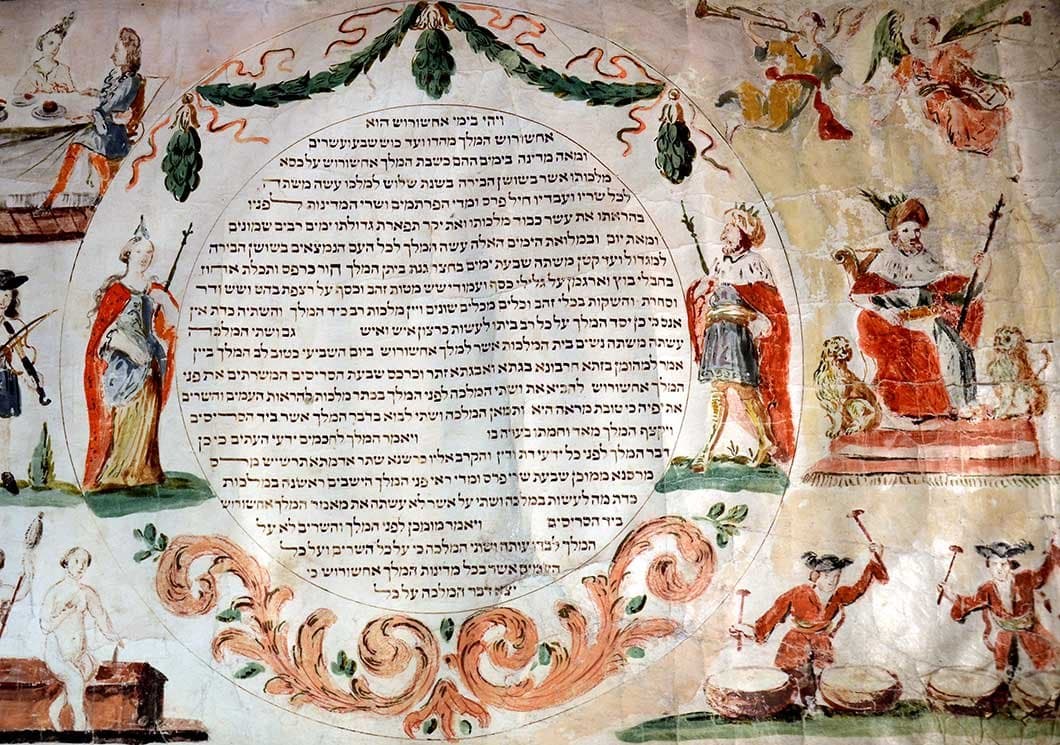 ויהי בימי אחשורוש הוא
אחשורוש המלך מהדו ועד כוש שבע ועשרים
ומאה מדינה בימים ההם כשבת המלך אחשורוש על כסא
מלכותו אשר בשושן הבירה בשנת שלוש למלכו עשה משתה
לכל שריו ועבדיו חיל פרס ומדי הפרתמים ושרי המדינות לפניו
בהראתו את עשר כבוד מלכותו ואת יקר תפארת גדולתו ימים רבים שמונים
ומאת יום ובמלואת הימים האלה עשה המלך לכל העם הנמצאים בשושן הבירה
למגדול ועד קטן משתה שבעת ימים בחצר גנת ביתן המלך חור כרפס ותכלת אחוז
בחבלי בוץ וארגמן על גלילי כסף ועמודי שש מטות זהב וכסף על רצפת בהט ושש ודר
וסחרת והשקות בכלי זהב וכלים מכלים שונים ויין מלכות רב כיד המלך והשתיה כדת אין
אנס כי כן יסד המלך על כל רב ביתו לעשות כרצון איש ואיש גם ושתי המלכה
עשתה משתה נשים בית המלכות אשר למלך אחשורוש ביום השביעי כטוב לב המלך ביין
אמר למהומן בזתא חרבונא בגתא ואבגתא זתר וכרכס שבעת הסריסים המשרתים את פני
המלך אחשורוש להביא את ושתי המלכה לפני המלך בכתר מלכות להראות העמים והשרים
את יפיה כי טובת מראה היא ותמאן המלכה ושתי לבוא בדבר המלך אשר ביד הסריסים
ויקצף המלך מאד וחמתו בערה בו ויאמר המלך לחכמים ידעי העתים כי כן
דבר המלך לפני כל ידעי דת ודין והקרב אליו כרשנא שתר אדמתא תרשיש מרס
מרסנא ממוכן שבעת שרי פרס ומדי ראי פני המלך הישבים ראשנה במלכות
כדת מה לעשות במלכה ושתי על אשר לא עשתה את מאמר המלך אחשורוש
ביד הסריסים ויאמר מומכן לפני המלך והשרים לא על
המלך לבדו עותה ושתי המלכה כי על כל השרים ועל כל
העמים אשר בכל מדינות המלך אחשורוש כי
יצא דבר המלכה על כל